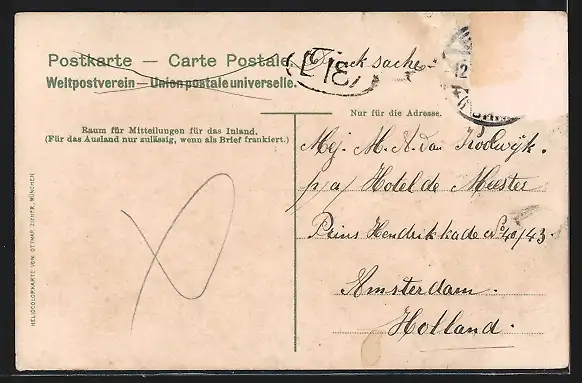 Postkarte — Carte Postale
Weltpostverein — Union postale universelle.
Drucksache.
Nur für die Adresse.
Raum für Mitteilungen für das Inland.
(Für das Ausland nur zulässig, wenn als Brief frankiert.)
Mej. M. A. van
p/a/ Hotel de Meester
Prins Hendrikkade No 40/43.
Amsterdam.
Holland.
HELIOCOLORKARTE VON OTTMAR ZIEHER, MÜNCHEN